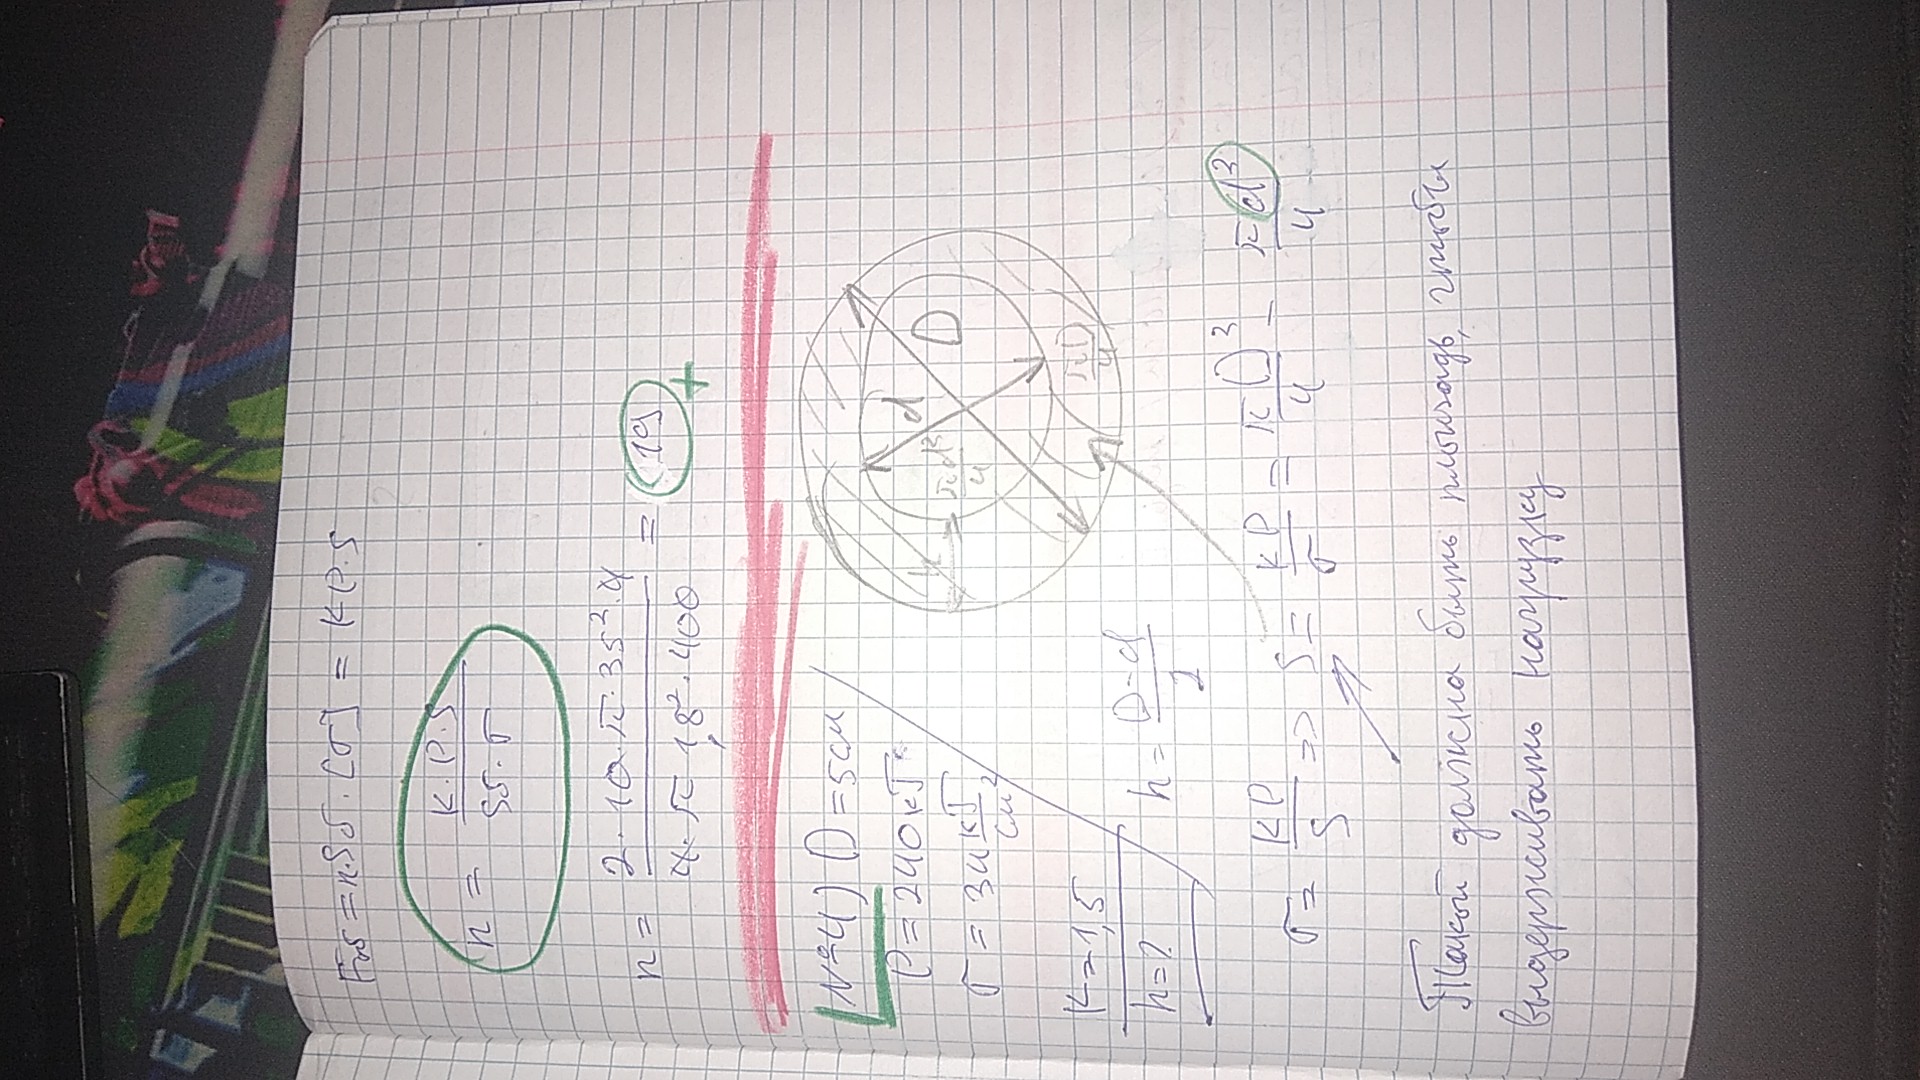 Fσδ = n·Sδ·[σ] = KP·S
n = K·P·S / Sδ·σ
n = 2·10·π·35²·4 / 4·π 1,8²·400 = 19 +
№4) D = 5 см
P = 240 кГ
σ = 34 кГ/см²
K = 1,5
h = ?
h
πd²/4
d
D
πD/4
h = D-d / 2
σ = KP/S => S = KP/σ = πD²/4 - πd²/4
Такой должна быть площадь, чтобы
выдерживать нагрузку